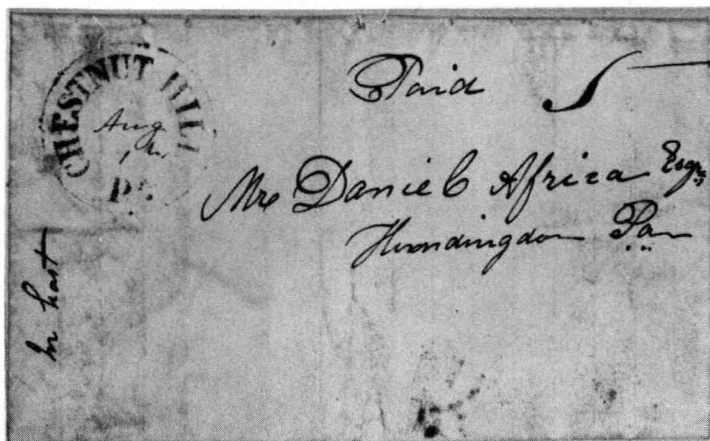 CHESTNUT HILL
Aug
1
Pa.
Paid 5
Mr Daniel Africa Esqr
Huondingdon Pa
in hast